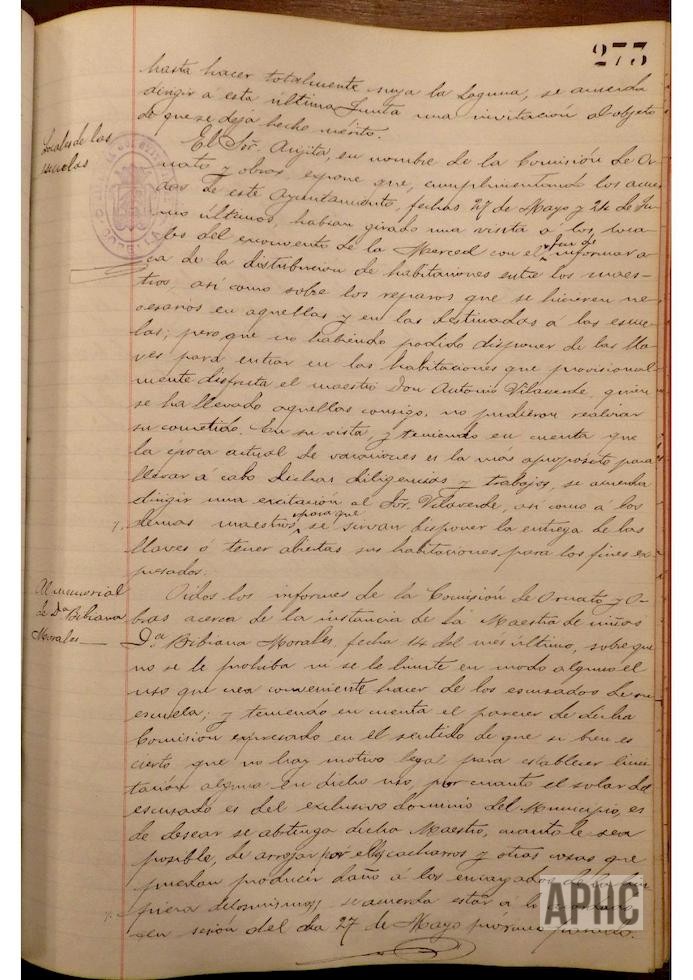 273
hasta hacer totalmente suya la Laguna, se acuerda
dirigir á esta última Junta una invitación al objeto
de que se deja hecho mérito.
Locales de las
escuelas
El Sor. Angita, en nombre de la Comisión de Or-
nato y obras, expone que, cumplimentando los acuer-
dos de este Ayuntamiento, fechas 27 de Mayo y 24 de Ju-
nio últimos, habían girado una visita a los loca-
les del exconvento de la Merced con el fin de informar a
cerca de la distribucion de habitaciones entre los maes-
tros, asi como sobre los reparos que se hicieren ne-
cesarios en aquellas y en las destinadas á las escue-
las; pero que no habiendo podido disponer de las lla-
ves para entrar en las habitaciones que provisional-
mente disfruta el maestro Don Antonio Vilaverde, quien
se ha llevado aquellas consigo, no pudieron realizar
su cometido. En su vista, y teniendo en cuenta que
la época actual de vacaciones es la más apropósito para
llevar á cabo dichas diligencias y trabajos, se acuerda
dirigir una excitación al Sor. Vilaverde, asi como á los
demas maestros, para que se sirvan disponer la entrega de las
llaves ó tener abiertas sus habitaciones para los fines ex-
presados.
Al memorial
de Da. Bibiana
Morales
Oidos los informes de la Comisión de Ornato y O-
bras acerca de la instancia de la Maestra de niñas
Da. Bibiana Morales, fecha 14 del més último, sobre que
no se le prohiba ni se le limite en modo alguno el
uso que crea conveniente hacer de los escusados de su
escuela; y teniendo en cuenta el parecer de dicha
Comisión expresado en el sentido de que si bien es
cierto que no hay motivo legal para establecer limi-
tación alguna en dicho uso, por cuanto el solar del
escusado es del exclusivo dominio del Municipio, es
de desear se abstenga dicha Maestra, cuanto le sea
posible, de arrojar por ellos cacharros y otras cosas que
puedan producir daño á los encargados de la lim-
pieza de los mismos, se acuerda estar á lo
en sesión del dia 27 de Mayo próximo pasado.
APHC